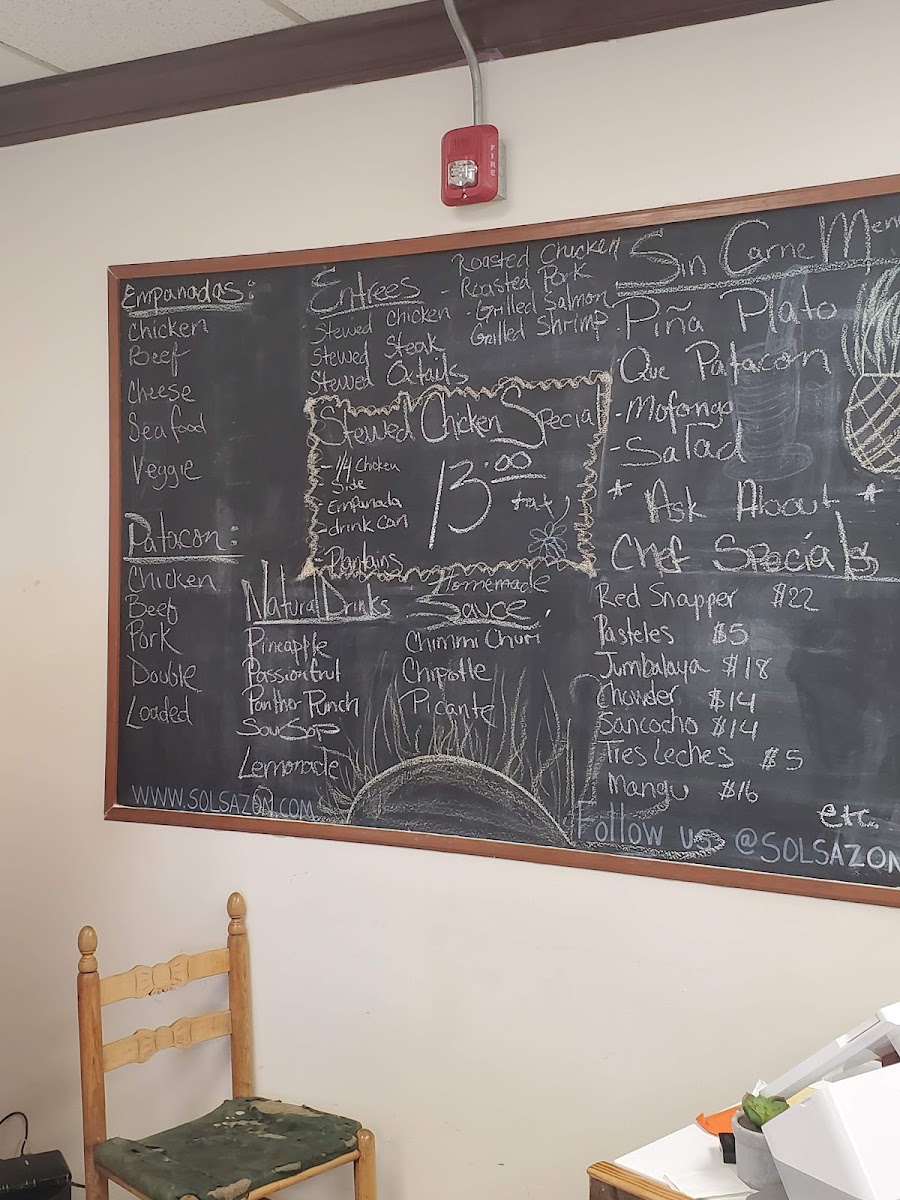 FIRE
Empanadas:
Chicken
Beef
Cheese
Seafood
Veggie
Patacon:
Chicken
Beef
Pork
Double
Loaded
Entrees
Stewed Chicken
Stewed Steak
Stewed Oxtails
- Roasted Chicken
- Roasted Pork
- Grilled Salmon
Grilled Shrimp
Stewed Chicken Special
- 1/4 Chicken
- Side
- Empanada
- drink can
- Plantains
13.00
Natural Drinks
Pineapple
Passionfruit
Panthor Punch
SourSop
Lemonade
Homemade
Sauce
Chimmi Churi
Chipotle
Picante
Sin Carne Men
Piña Plato
Que Patacon
- Mofongo
- Salad
* Ask About *
Chef Specials
Red Snapper $22
Pasteles $5
Jumbalaya $18
Chowder $14
Sancocho $14
Tres Leches $5
Mangu $16
etc.
WWW.SOLSAZON.COM
Follow us @SOLSAZON